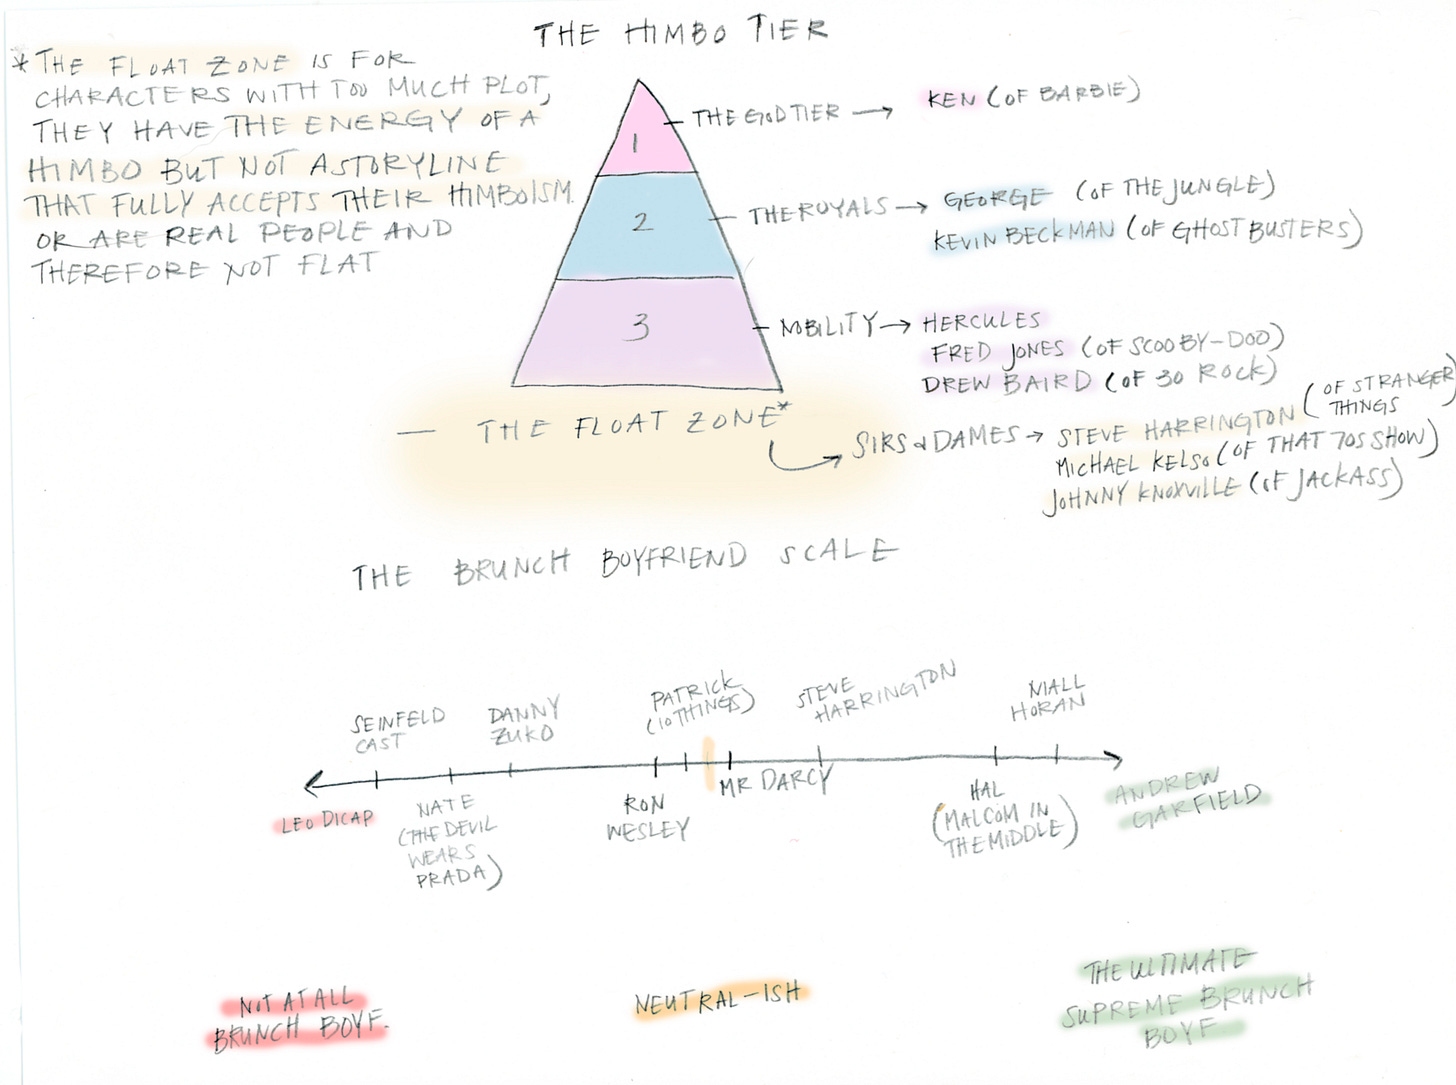 THE HIMBO TIER
* THE FLOAT ZONE IS FOR
CHARACTERS WITH TOO MUCH PLOT,
THEY HAVE THE ENERGY OF A
HIMBO BUT NOT A STORYLINE
THAT FULLY ACCEPTS THEIR HIMBOISM.
OR ARE REAL PEOPLE AND
THEREFORE NOT FLAT
1
THE GOD TIER → KEN (OF BARBIE)
2
THE ROYALS → GEORGE (OF THE JUNGLE)
KEVIN BECKMAN (OF GHOSTBUSTERS)
3
NOBILITY → HERCULES
FRED JONES (OF SCOOBY-DOO)
DREW BAIRD (OF 30 ROCK)
— THE FLOAT ZONE*
SIRS & DAMES → STEVE HARRINGTON (OF STRANGER
THINGS
MICHAEL KELSO (OF THAT 70S SHOW)
JOHNNY KNOXVILLE (OF JACKASS)
THE BRUNCH BOYFRIEND SCALE
SEINFELD
CAST
DANNY
ZUKO
PATRICK
(10 THINGS)
STEVE
HARRINGTON
NIALL
HORAN
LEO DICAP
NATE
(THE DEVIL
WEARS
PRADA)
RON
WESLEY
MR DARCY
HAL
(MALCOM IN
THE MIDDLE)
ANDREW
GARFIELD
NOT AT ALL
BRUNCH BOYF.
NEUTRAL-ISH
THE ULTIMATE
SUPREME BRUNCH
BOYF